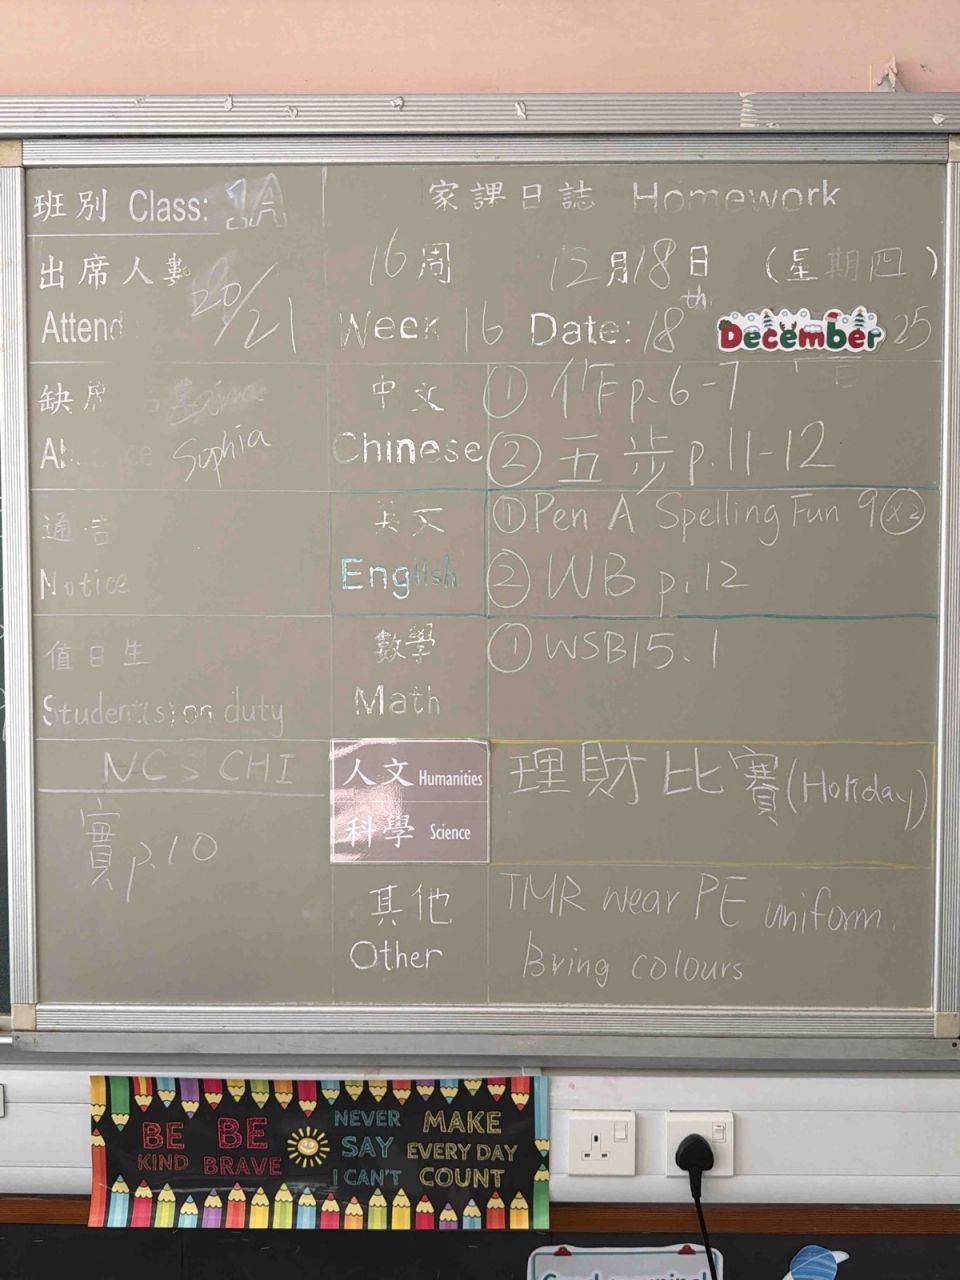 班別 Class: 1A
家課日誌 Homework
出席人數
20/21
Attend
16周 12月18日 (星期四)
Week 16 Date: 18th December 25
缺席
Sophia
中文
Chinese
① 作 p.6-7
② 五步 p.11-12
通告
Notice
英文
English
① Pen A Spelling Fun 9 (x2)
② WB p.12
值日生
Student(s) on duty
數學
Math
① WSB15.1
NCS CHI
實 p.10
人文 Humanities
科學 Science
理財比賽 (Holiday)
其他
Other
TMR wear PE uniform.
Bring colours
BE KIND
BE BRAVE
NEVER SAY I CAN'T
MAKE EVERY DAY COUNT